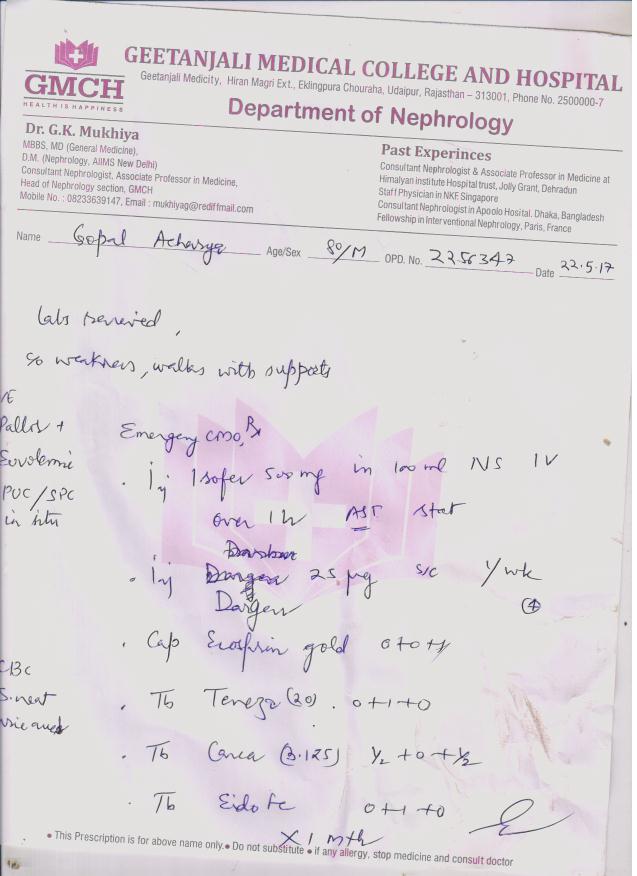 GMCH
HEALTH IS HAPPINESS
GEETANJALI MEDICAL COLLEGE AND HOSPITAL
Geetanjali Medicity, Hiran Magri Ext., Eklingpura Chouraha, Udaipur, Rajasthan – 313001, Phone No. 2500000-7
Department of Nephrology
Dr. G.K. Mukhiya
MBBS, MD (General Medicine),
D.M. (Nephrology, AIIMS New Delhi)
Consultant Nephrologist, Associate Professor in Medicine,
Head of Nephrology section, GMCH
Mobile No. : 08233639147, Email : mukhiyag@rediffmail.com
Past Experinces
Consultant Nephrologist & Associate Professor in Medicine at
Himalyan institute Hospital trust, Jolly Grant, Dehradun
Staff Physician in NKF Singapore
Consultant Nephrologist in Apoolo Hosital, Dhaka, Bangladesh
Fellowship in Interventional Nephrology, Paris, France
Name Gopal Acharya Age/Sex 80/M OPD. No. 2256347 Date 22.5.17
Labs reviewed,
c/o weakness, walks with supports
Pallor +
Euvolemic
PUC/SPC
in situ
Emergency CMO, Rx
. Inj Isofer 500 mg in 100 ml NS IV
over 1h AST stat
. Inj 25 µg s/c 1/wk
(4)
. Cap Ecosprin gold 0+0+1
CBC
. Tb (20) . 0+1+0
. Tb (3.125) ½+0+½
. Tb 0+1+0
X 1 mth
• This Prescription is for above name only. • Do not substitute • if any allergy, stop medicine and consult doctor